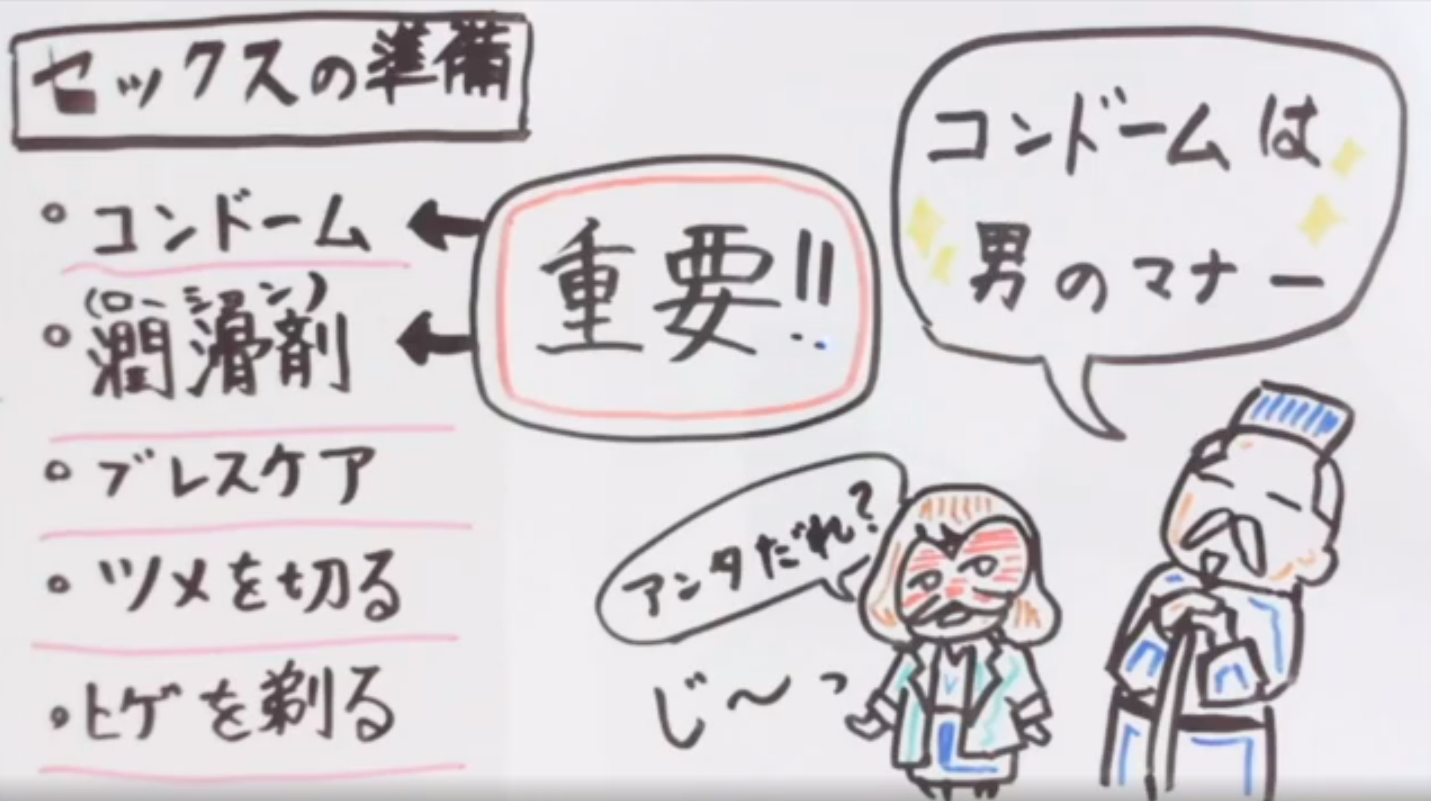 セックスの準備
。コンドーム
(ローション)
。潤滑剤
。ブレスケア
。ツメを切る
。ヒゲを剃る
重要!!
コンドームは
男のマナー
アンタだれ?
じ〜っ